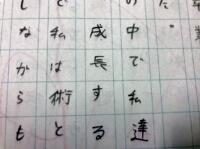 た。
の中で私達
成長する
で私は術と
しながらも